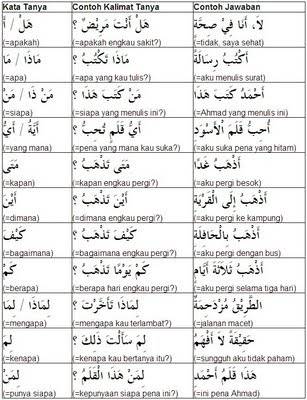 Kata Tanya	Contoh Kalimat Tanya	Contoh Jawaban
هَلْ / أَ	هَلْ أَنْتَ مَرِيْضٌ ؟	لاَ، أَنَا فِيْ صِحَّةٍ
(=apakah)	(=apakah engkau sakit?)	(=tidak, saya sehat)
مَاذَا / مَا	مَاذَا تَكْتُبُ ؟	أَكْتُبُ رِسَالَةً
(=apa)	(=apa yang kau tulis?)	(=aku menulis surat)
مَنْ ذَا / مَنْ	مَنْ كَتَبَ هَذَا ؟	أَحْمَدُ كَتَبَ هَذَا
(=siapa)	(=siapa yang menulis ini?)	(=Ahmad yang menulis ini)
أَيَّةُ / أَيُّ	أَيُّ قَلَمٍ تُحِبُّ ؟	أُحِبُّ قَلَمَ الْأَسْوَدِ
(=yang mana)	(=pena yang mana kau suka?)	(=aku suka pena yang hitam)
مَتَى	مَتَى تَذْهَبُ ؟	أَذْهَبُ غَدًا
(=kapan)	(=kapan engkau pergi?)	(=aku pergi besok)
أَيْنَ	أَيْنَ تَذْهَبُ ؟	أَذْهَبُ إِلَى الْقَرْيَةِ
(=dimana)	(=dimana engkau pergi?)	(=aku pergi ke kampung)
كَيْفَ	كَيْفَ تَذْهَبُ ؟	أَذْهَبُ بِالْحَافِلَةِ
(=bagaimana)	(=bagaimana engkau pergi?)	(=aku pergi dengan bus)
كَمْ	كَمْ يَوْمًا تَذْهَبُ ؟	أَذْهَبُ ثَلَاثَةَ أَيَّامٍ
(=berapa)	(=berapa hari engkau pergi?)	(=aku pergi selama tiga hari)
لِمَاذَا / لِمَا	لِمَاذَا تَأَخَّرْتَ ؟	الطَّرِيْقُ مُزْدَحِمَةٌ
(=mengapa)	(=mengapa kau terlambat?)	(=jalanan macet)
لِمَ	لِمَ سَأَلْتَ ذَلِكَ ؟	حَقِيْقَةً لَا أَفْهَمُ
(=kenapa)	(=kenapa kau bertanya itu?)	(=sungguh aku tidak paham)
لِمَنْ	لِمَنْ هَذَا الْقَلَمُ ؟	هَذَا قَلَمُ أَحْمَدٍ
(=punya siapa)	(=kepunyaan siapa pena ini?)	(=ini pena Ahmad)